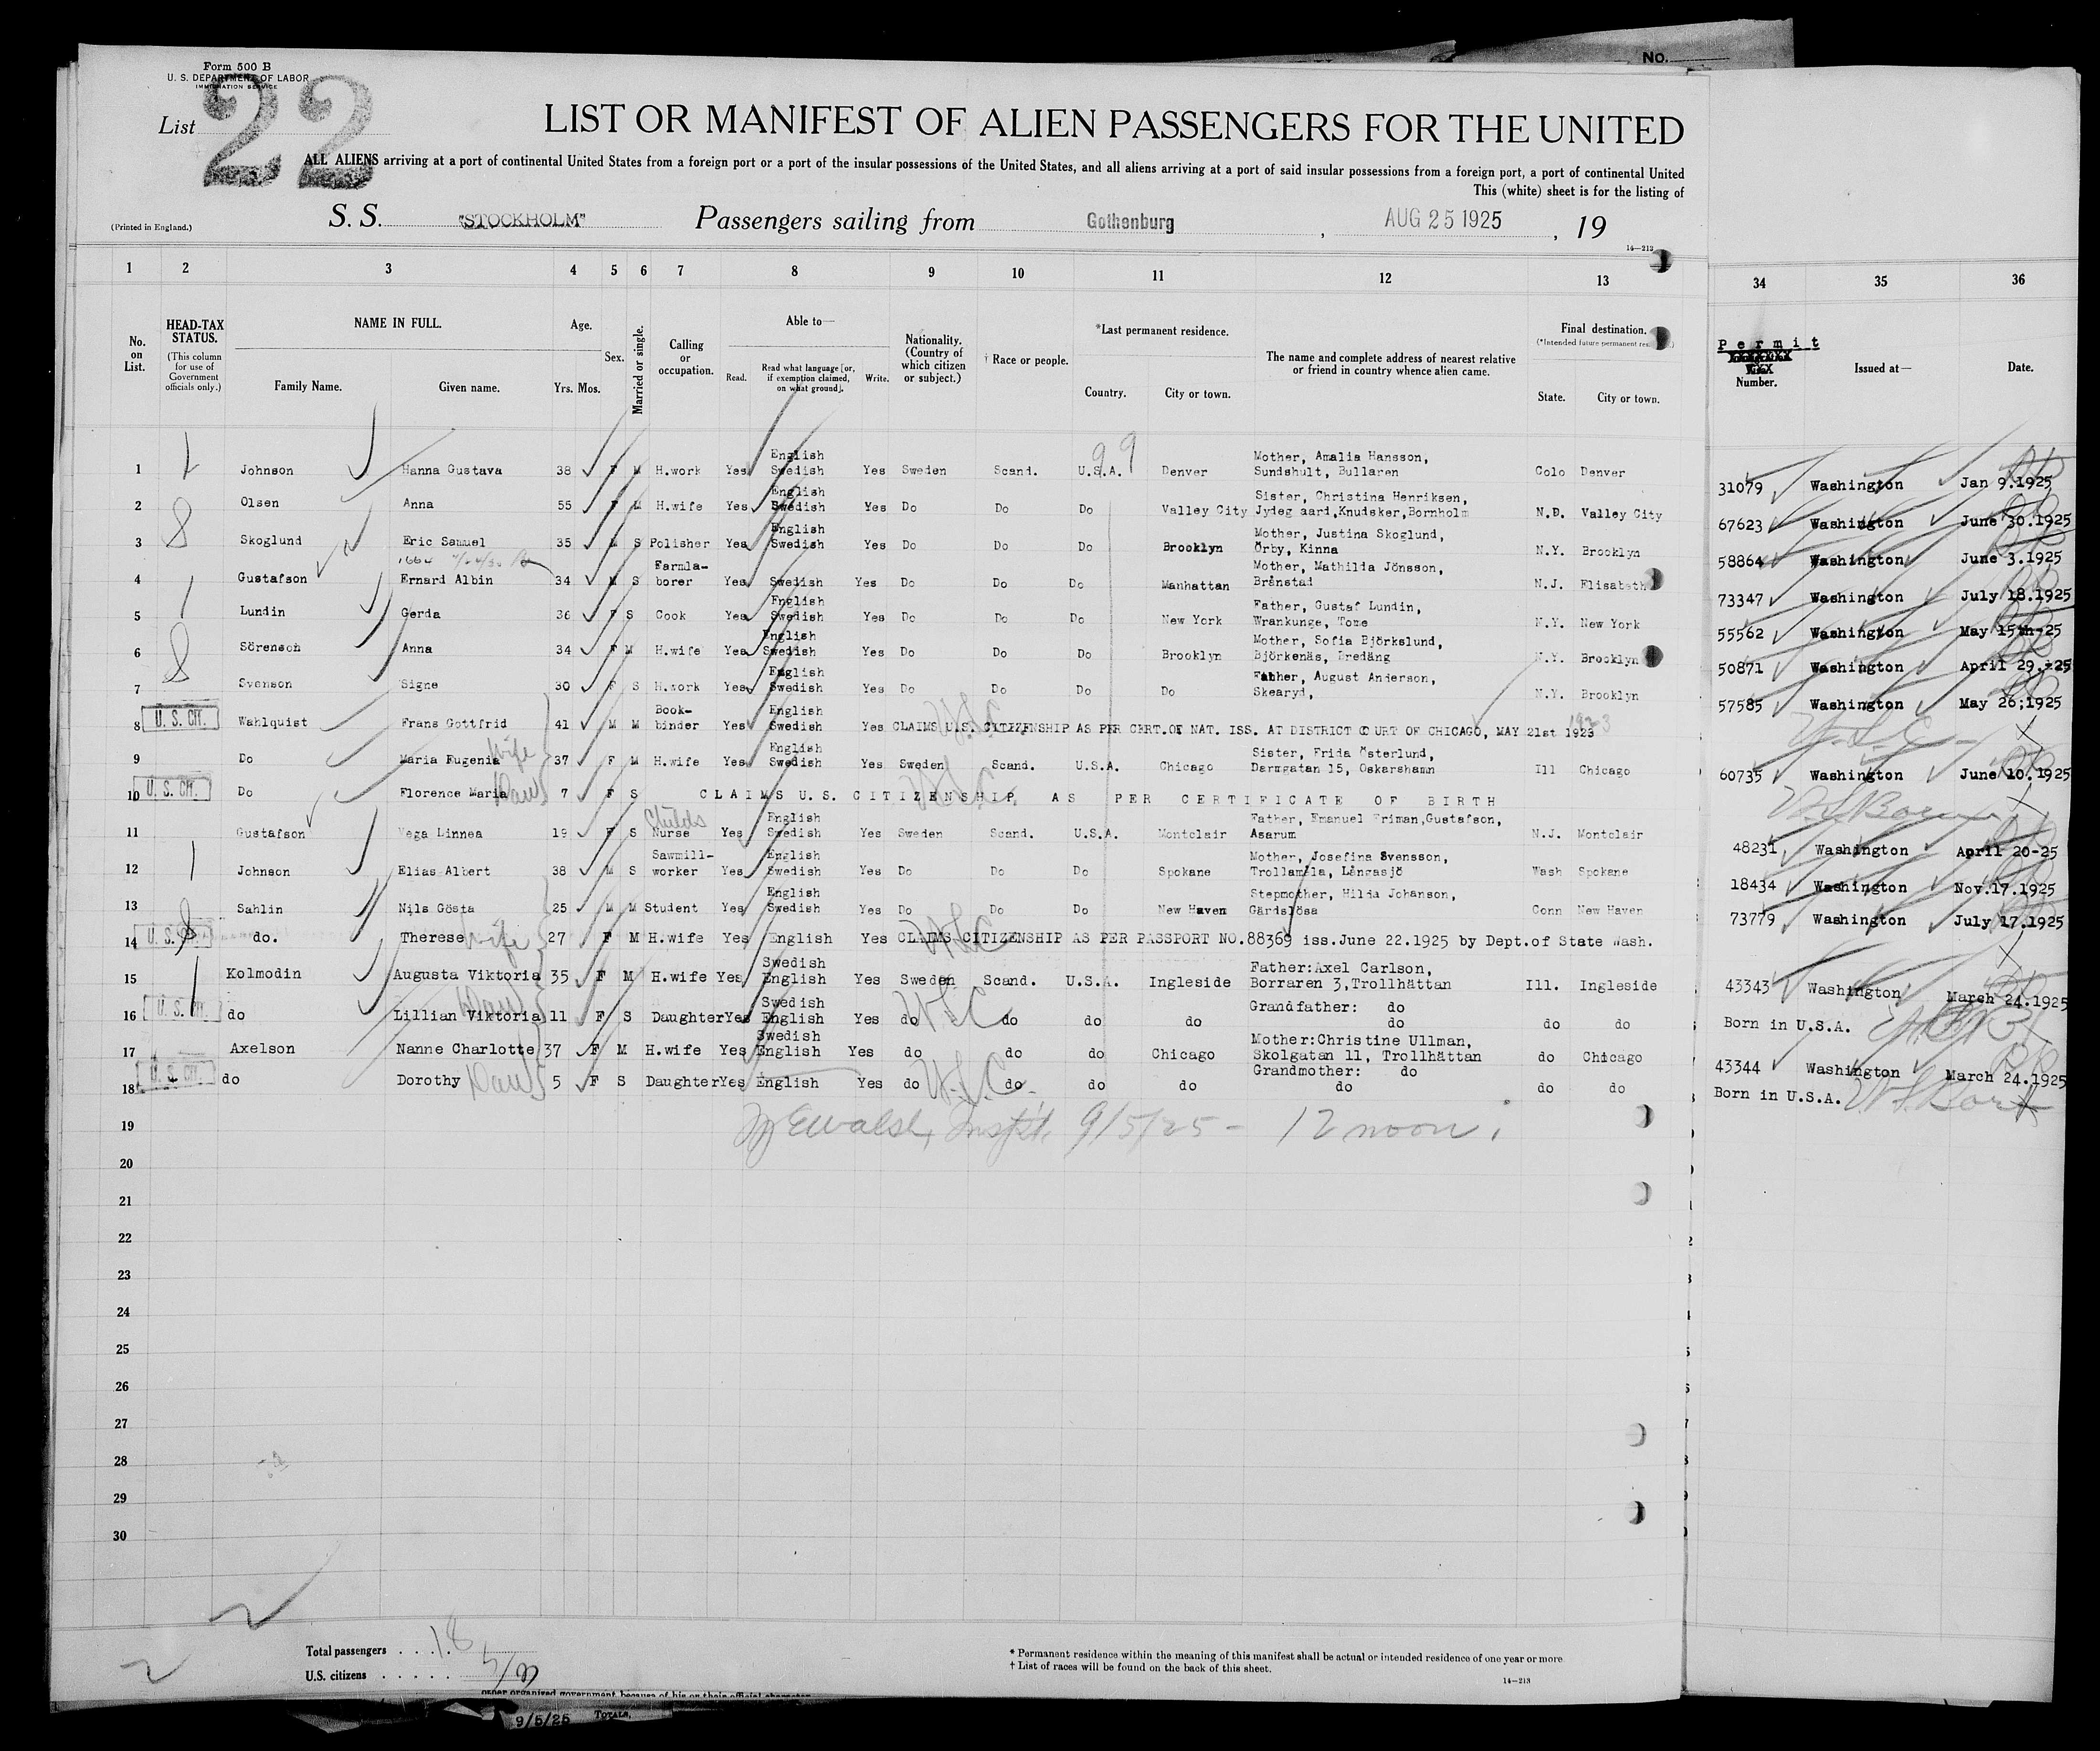 No.
Form 500 B
U. S. DEPARTMENT OF LABOR
IMMIGRATION SERVICE
List 22
LIST OR MANIFEST OF ALIEN PASSENGERS FOR THE UNITED
ALL ALIENS arriving at a port of continental United States from a foreign port or a port of the insular possessions of the United States, and all aliens arriving at a port of said insular possessions from a foreign port, a port of continental United
This (white) sheet is for the listing of
(Printed in England.)
S. S. "STOCKHOLM" Passengers sailing from Gothenburg, AUG 25 1925, 19
14—213
1 2 3 4 5 6 7 8 9 10 11 12 13 34 35 36
No. on List.
HEAD-TAX STATUS.
(This column for use of Government officials only.)
NAME IN FULL.
Family Name. Given name.
Age.
Yrs. Mos.
Sex.
Married or single.
Calling or occupation.
Able to—
Read. Read what language [or, if exemption claimed, on what ground]. Write.
Nationality. (Country of which citizen or subject.)
† Race or people.
*Last permanent residence.
Country. City or town.
The name and complete address of nearest relative or friend in country whence alien came.
Final destination.
(*Intended future permanent
State. City or town.
Permit
Number.
Issued at—
Date.
99
1 Johnson Hanna Gustava 38 F M H.work Yes English Swedish Yes Sweden Scand. U.S.A. Denver Mother, Amalia Hansson, Sundshult, Bullaren Colo Denver 31079 Washington Jan 9.1925
2 Olsen Anna 55 F M H.wife Yes English Swedish Yes Do Do Do Valley City Sister, Christina Henriksen, Jydeg aard,Knudsker,Bornholm N.D. Valley City 67623 Washington June 30.1925
3 Skoglund Eric Samuel 35 M S Polisher Yes English Swedish Yes Do Do Do Brooklyn Mother, Justina Skoglund, Örby, Kinna N.Y. Brooklyn 58864 Washington June 3.1925
4 Gustafson Ernard Albin 34 M S Farmla-borer Yes Swedish Yes Do Do Do Manhattan Mother, Mathilda Jönsson, Brånstad N.J. Elisabeth 73347 Washington July 18.1925
5 Lundin Gerda 36 F S Cook Yes English Swedish Yes Do Do Do New York Father, Gustaf Lundin, Wrankunge, Tome N.Y. New York 55562 Washington May 15th-25
6 Sörenson Anna 34 F M H.wife Yes English Swedish Yes Do Do Do Brooklyn Mother, Sofia Björkslund, Björkenäs, Bredäng N.Y. Brooklyn 50871 Washington April 29,-25
7 Svenson Signe 30 F S H.work Yes English Swedish Yes Do Do Do Do Father, August Anderson, Skearyd, N.Y. Brooklyn 57585 Washington May 26.1925
8 U. S. CIT. Wahlquist Frans Gottfrid 41 M M Book-binder Yes English Swedish Yes CLAIMS U.S. CITIZENSHIP AS PER CERT.OF NAT. ISS. AT DISTRICT COURT OF CHICAGO, MAY 21st 1923 1923 U.S.C.
9 Do Maria Eugenia Wife 37 F M H.wife Yes English Swedish Yes Sweden Scand. U.S.A. Chicago Sister, Frida Österlund, Darmgatan 15, Oskarshamn Ill Chicago 60735 Washington June 10.1925
10 U. S. CIT. Do Florence Maria Dau 7 F S CLAIMS U.S. CITIZENSHIP AS PER CERTIFICATE OF BIRTH USC U.S.Born
11 Gustafson Vega Linnea 19 F S Childs Nurse Yes English Swedish Yes Sweden Scand. U.S.A. Montclair Father, Emanuel Friman,Gustafson, Asarum N.J. Montclair 48231 Washington April 20-25
12 Johnson Elias Albert 38 M S Sawmill-worker Yes English Swedish Yes Do Do Do Spokane Mother, Josefina Svensson, Trollamåla, Långasjö Wash Spokane 18434 Washington Nov.17.1925
13 Sahlin Nils Gösta 25 M M Student Yes English Swedish Yes Do Do Do New Haven Stepmother, Hilda Johanson, Gärdslösa Conn New Haven 73779 Washington July 17.1925
14 U. S. do. Therese Wife 27 F M H.wife Yes English Yes CLAIMS CITIZENSHIP AS PER PASSPORT NO.88369 iss.June 22.1925 by Dept.of State Wash. USC
15 Kolmodin Augusta Viktoria 35 F M H.wife Yes Swedish English Yes Sweden Scand. U.S.A. Ingleside Father:Axel Carlson, Borraren 3,Trollhättan Ill. Ingleside 43343 Washington March 24.1925
16 U. S. CIT. do Lillian Viktoria Dau 11 F S Daughter Yes Swedish English Yes do do do do Grandfather: do do do do Born in U.S.A. USC
17 Axelson Nanne Charlotte 37 F M H.wife Yes Swedish English Yes do do do Chicago Mother:Christine Ullman, Skolgatan 11, Trollhättan do Chicago 43344 Washington March 24.1925
18 U. S. CIT. do Dorothy Dau 5 F S Daughter Yes English Yes do do do do Grandmother: do do do do Born in U.S.A. U.S.C. U.S.Born
19 Walsh, Inspt. 9/5/25 - 12 noon.
20
21
22
23
24
25
26
27
28
29
30
Total passengers 18
U.S. citizens 5
* Permanent residence within the meaning of this manifest shall be actual or intended residence of one year or more.
† List of races will be found on the back of this sheet.
14—213
9/5/25 TOTALS,